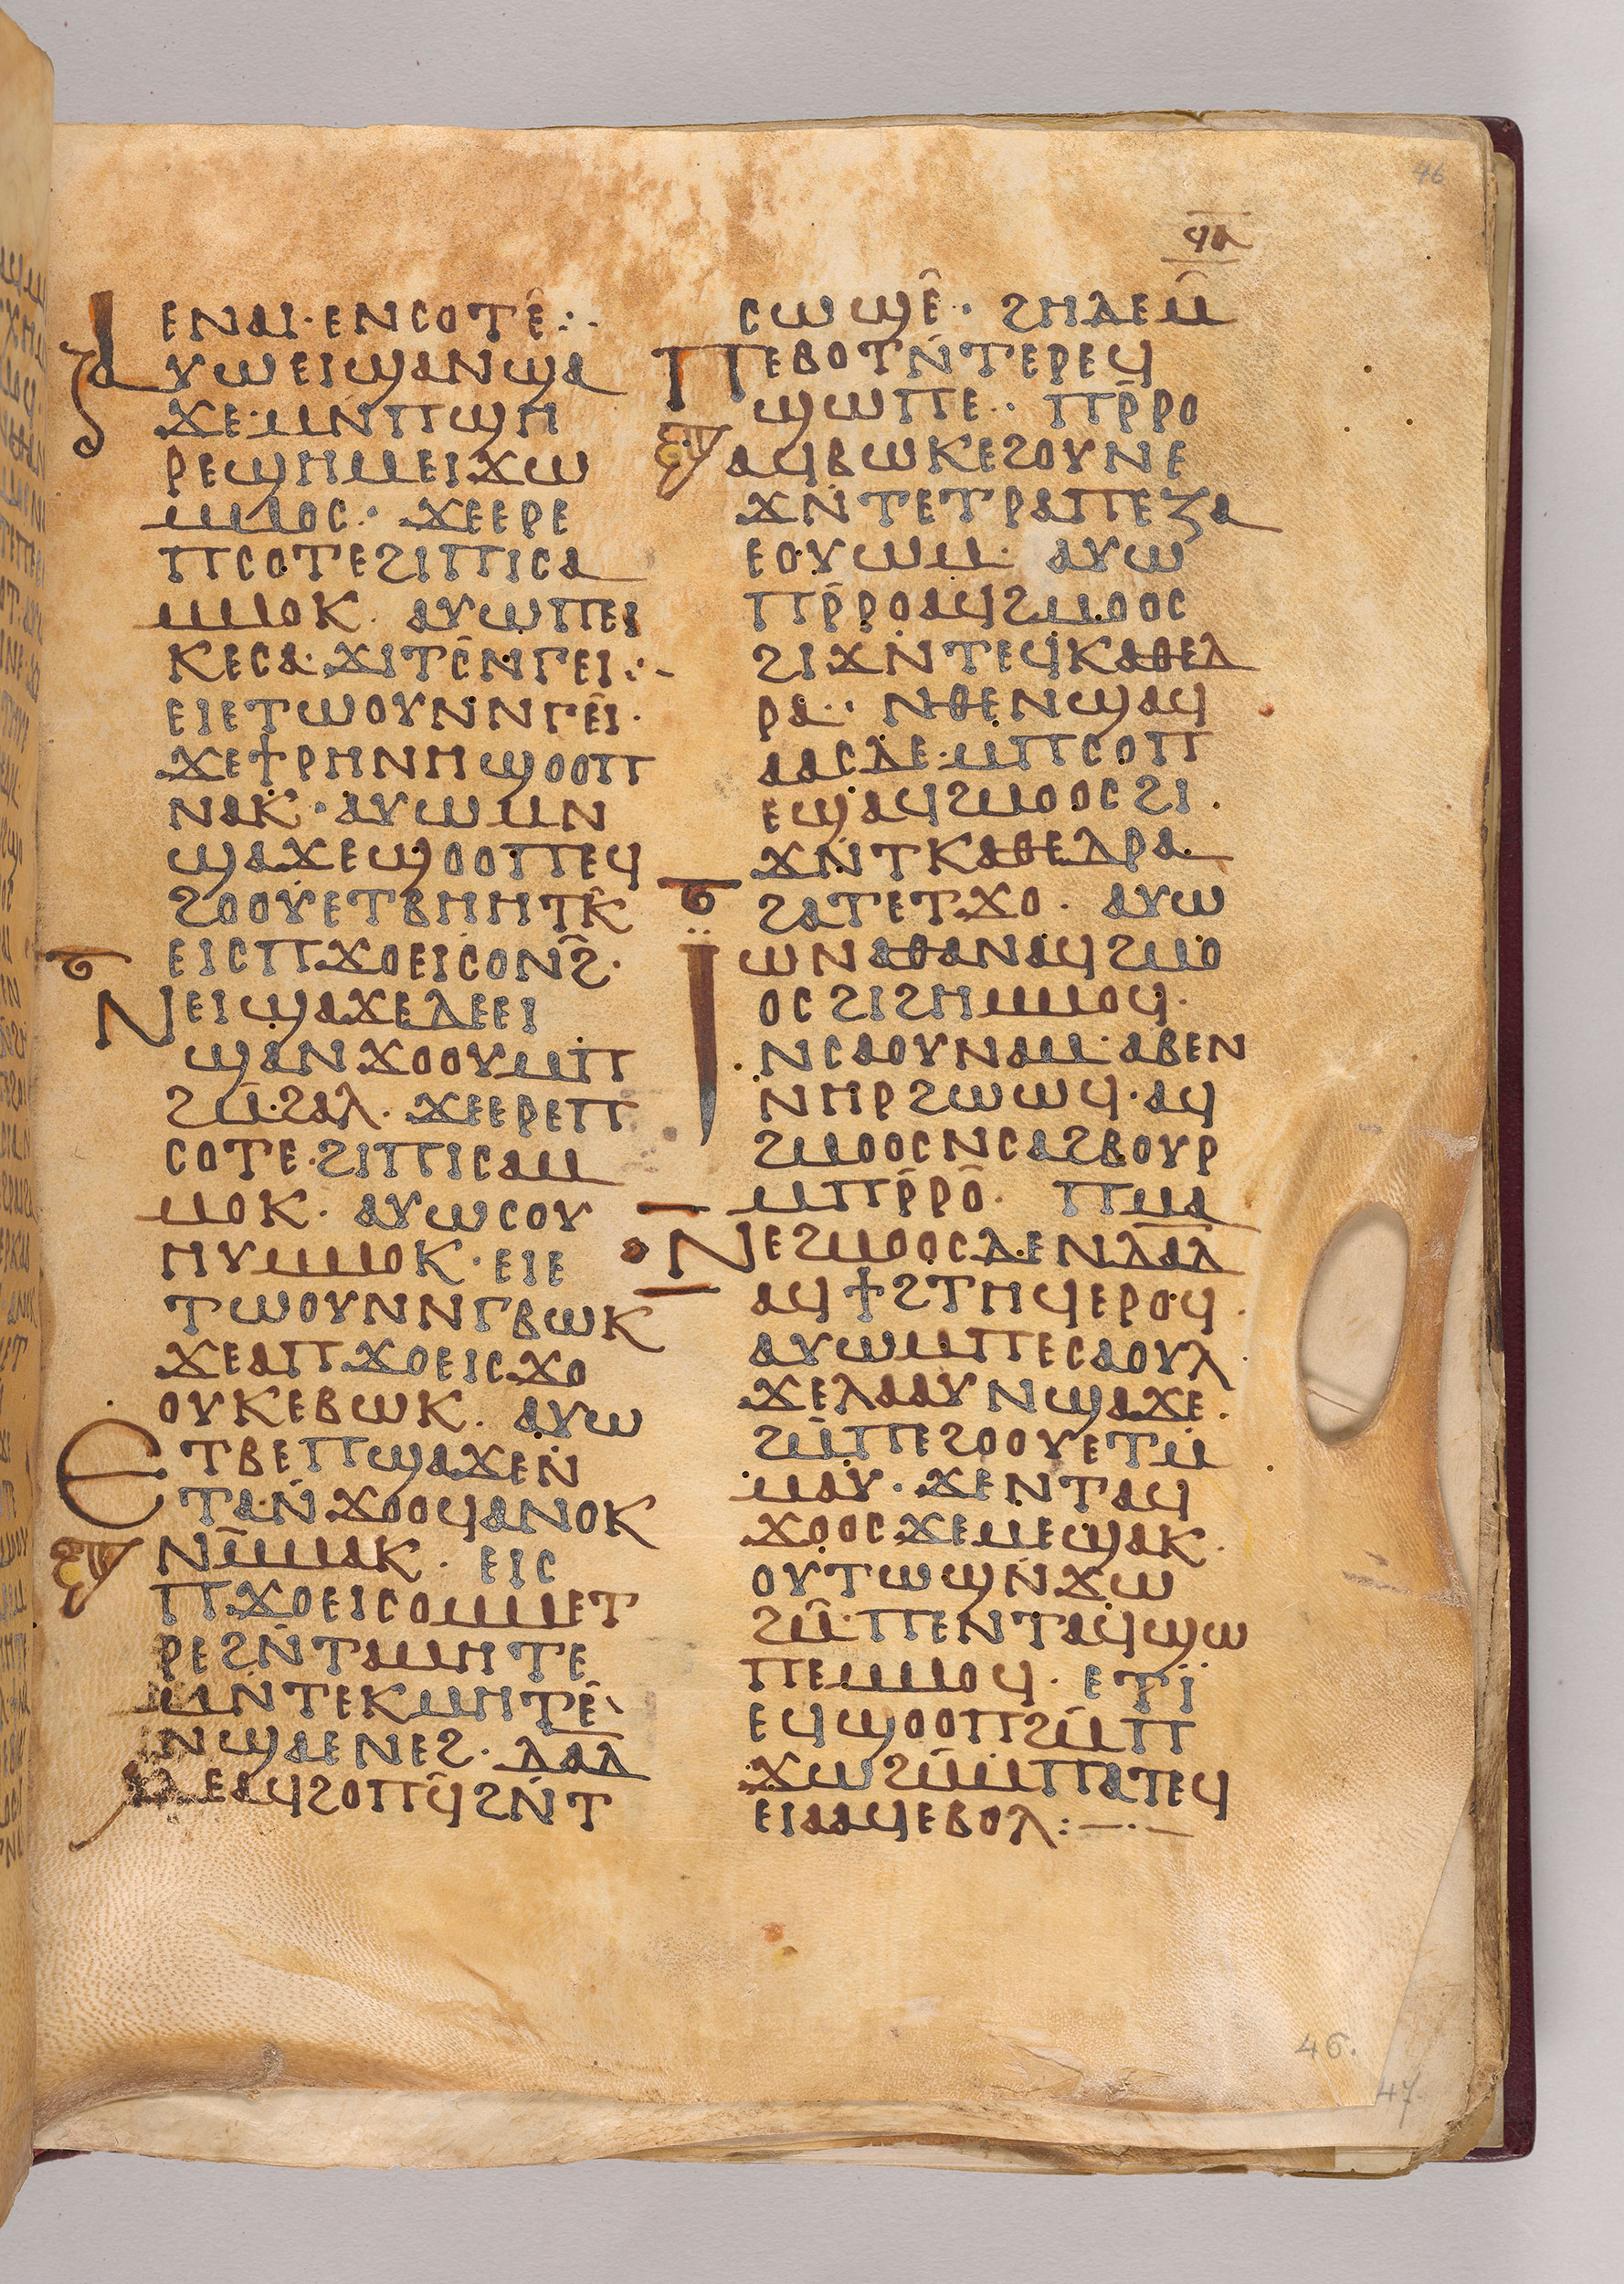 46
ϥⲁ
ⲉⲛⲁⲓ· ⲉⲛⲥⲟⲧⲉ̂ :·
ⲁⲩⲱ ⲉⲓϣⲁⲛϣⲁ
ϫⲉ· ⲙⲛⲡϣⲏ
ⲣⲉϣⲏⲙ ⲉⲓϫⲱ
ⲙⲙⲟⲥ· ϫⲉⲉⲣⲉ
ⲡⲥⲟⲧⲉ ϩⲓⲡⲓⲥⲁ
ⲙⲙⲟⲕ· ⲁⲩⲱ ⲡⲉⲓ
ⲕⲉⲥⲁ· ϫⲓⲧⲥ̄ⲛⲅⲉⲓ :·
ⲉⲓⲉⲧⲱⲟⲩⲛⲛⲅⲉ̂ⲓ·
ϫⲉϯⲣⲏⲛⲏϣⲟⲟⲡ
ⲛⲁⲕ· ⲁⲩⲱ ⲙⲛ
ϣⲁϫⲉϣⲟⲟⲡ ⲉϥ
ϩⲟⲟⲩ ⲉⲧⲃⲏⲏⲧⲕ̂
ⲉⲓⲥⲡϫⲟⲉⲓⲥⲟⲛϩ̄·
ⲛⲉⲓϣⲁϫⲉ ⲇⲉ ⲉⲓ
ϣⲁⲛϫⲟⲟⲩ ⲙⲡ
ϩⲙ̄ϩⲁⲗ· ϫⲉⲉⲣⲉⲡ
ⲥⲟⲧⲉ· ϩⲓⲡⲓⲥⲁⲙ
ⲙⲟⲕ· ⲁⲩⲱ ⲥⲟⲩ
ⲏⲩ ⲙⲙⲟⲕ· ⲉⲓⲉ
ⲧⲱⲟⲩⲛⲛⲅⲃⲱⲕ
ϫⲉⲁⲡϫⲟⲉⲓⲥϫⲟ
ⲟⲩⲕ ⲉⲃⲱⲕ· ⲁⲩⲱ
ⲉⲧⲃⲉⲡϣⲁϫⲉⲛ
ⲧⲁⲛ̇ϫⲟⲟϥ ⲁⲛⲟⲕ
ⲛⲙ̄ⲙⲁⲕ· ⲉⲓⲥ
ⲡϫⲟⲉⲓⲥ ⲟ ⲙⲙⲉⲧ
ⲣⲉ ϩⲛ̄ⲧⲁⲙⲏⲧⲉ
ⲙⲛ̇ⲧⲉⲕⲙⲏⲧⲉ̂·
ⲛϣⲁⲉⲛⲉϩ· ⲇⲁ̅ⲇ̅
ⲇⲉ ⲁϥϩⲟⲡϥ̂ ϩⲛ̄ⲧ
ⲥⲱϣⲉ̂· ϩⲏ ⲇⲉ ⲙ̂
ⲡⲉⲃⲟⲧ ⲛ̇ⲧⲉⲣⲉϥ
ϣⲱⲡⲉ· ⲡⲣ̄ⲣⲟ
ⲁϥⲃⲱⲕ ⲉϩⲟⲩⲛ ⲉ
ϫⲛ̇ⲧⲉⲧⲣⲁⲡⲉⲍⲁ
ⲉⲟⲩⲱⲙ· ⲁⲩⲱ
ⲡⲣ̄ⲣⲟ ⲁϥϩⲙⲟⲟⲥ
ϩⲓϫⲛ̇ ⲧⲉϥⲕⲁⲑⲉⲇ
ⲣⲁ· ⲛⲑⲉ ⲛϣⲁϥ
ⲁⲁⲥ ⲇⲉ· ⲙⲡⲥⲟⲡ
ⲉϣⲁϥϩⲙⲟⲟⲥ ϩⲓ·
ϫⲛ̇ⲧⲕⲁⲑⲉⲇⲣⲁ
ϩⲁⲧⲉⲧϫⲟ· ⲁⲩⲱ
ⲓ̈ⲱⲛⲁⲑⲁⲛ ⲁϥϩⲙⲟ
ⲟⲥ ϩⲓϩⲏ ⲙⲙⲟϥ·
ⲛⲥⲁⲟⲩⲛⲁⲙ· ⲁⲃⲉⲛ
ⲛⲏⲣ ϩⲱⲱϥ· ⲁϥ
ϩⲙⲟⲟⲥ ⲛⲥⲁϩⲃⲟⲩⲣ
ⲙⲡⲣ̄ⲣⲟ̂· ⲡⲙⲁ
ⲛⲉϩⲙⲟⲟⲥ ⲇⲉ ⲛⲇⲁ̅ⲇ̅
ⲁϥϯϩⲧⲏϥ ⲉⲣⲟϥ·
ⲁⲩⲱ ⲙⲡⲉⲥⲁⲟⲩⲗ
ϫⲉⲗⲁⲁⲩ ⲛϣⲁϫⲉ·
ϩⲙ̇ⲡⲉϩⲟⲟⲩ ⲉⲧⲙ
ⲙⲁⲩ· ϫⲉⲛⲧⲁϥ
ϫⲟⲟⲥ ϫⲉⲙⲉϣⲁⲕ·
ⲟⲩⲧⲱϣⲛ̇ϫⲱ
ϩⲙ̂· ⲡⲉⲛⲧⲁϥϣⲱ
ⲡⲉ ⲙⲙⲟϥ· ⲉⲧⲓ̈
ⲉϥϣⲟⲟⲡ ϩⲙ̄ⲡ
ϫⲱϩⲙ̄ ⲙⲡⲁⲧⲉϥ
ⲉⲓⲁⲁϥ ⲉⲃⲟⲗ:—·—
46.
47